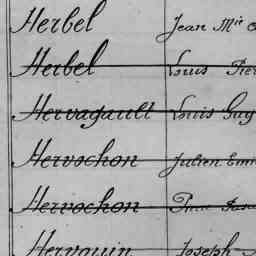 Herbel Jean Mie
Herbel Louis Pier
Hervagault Louis Guy
Hervochon Julien Emm
Hervochon
Hervouin Joseph